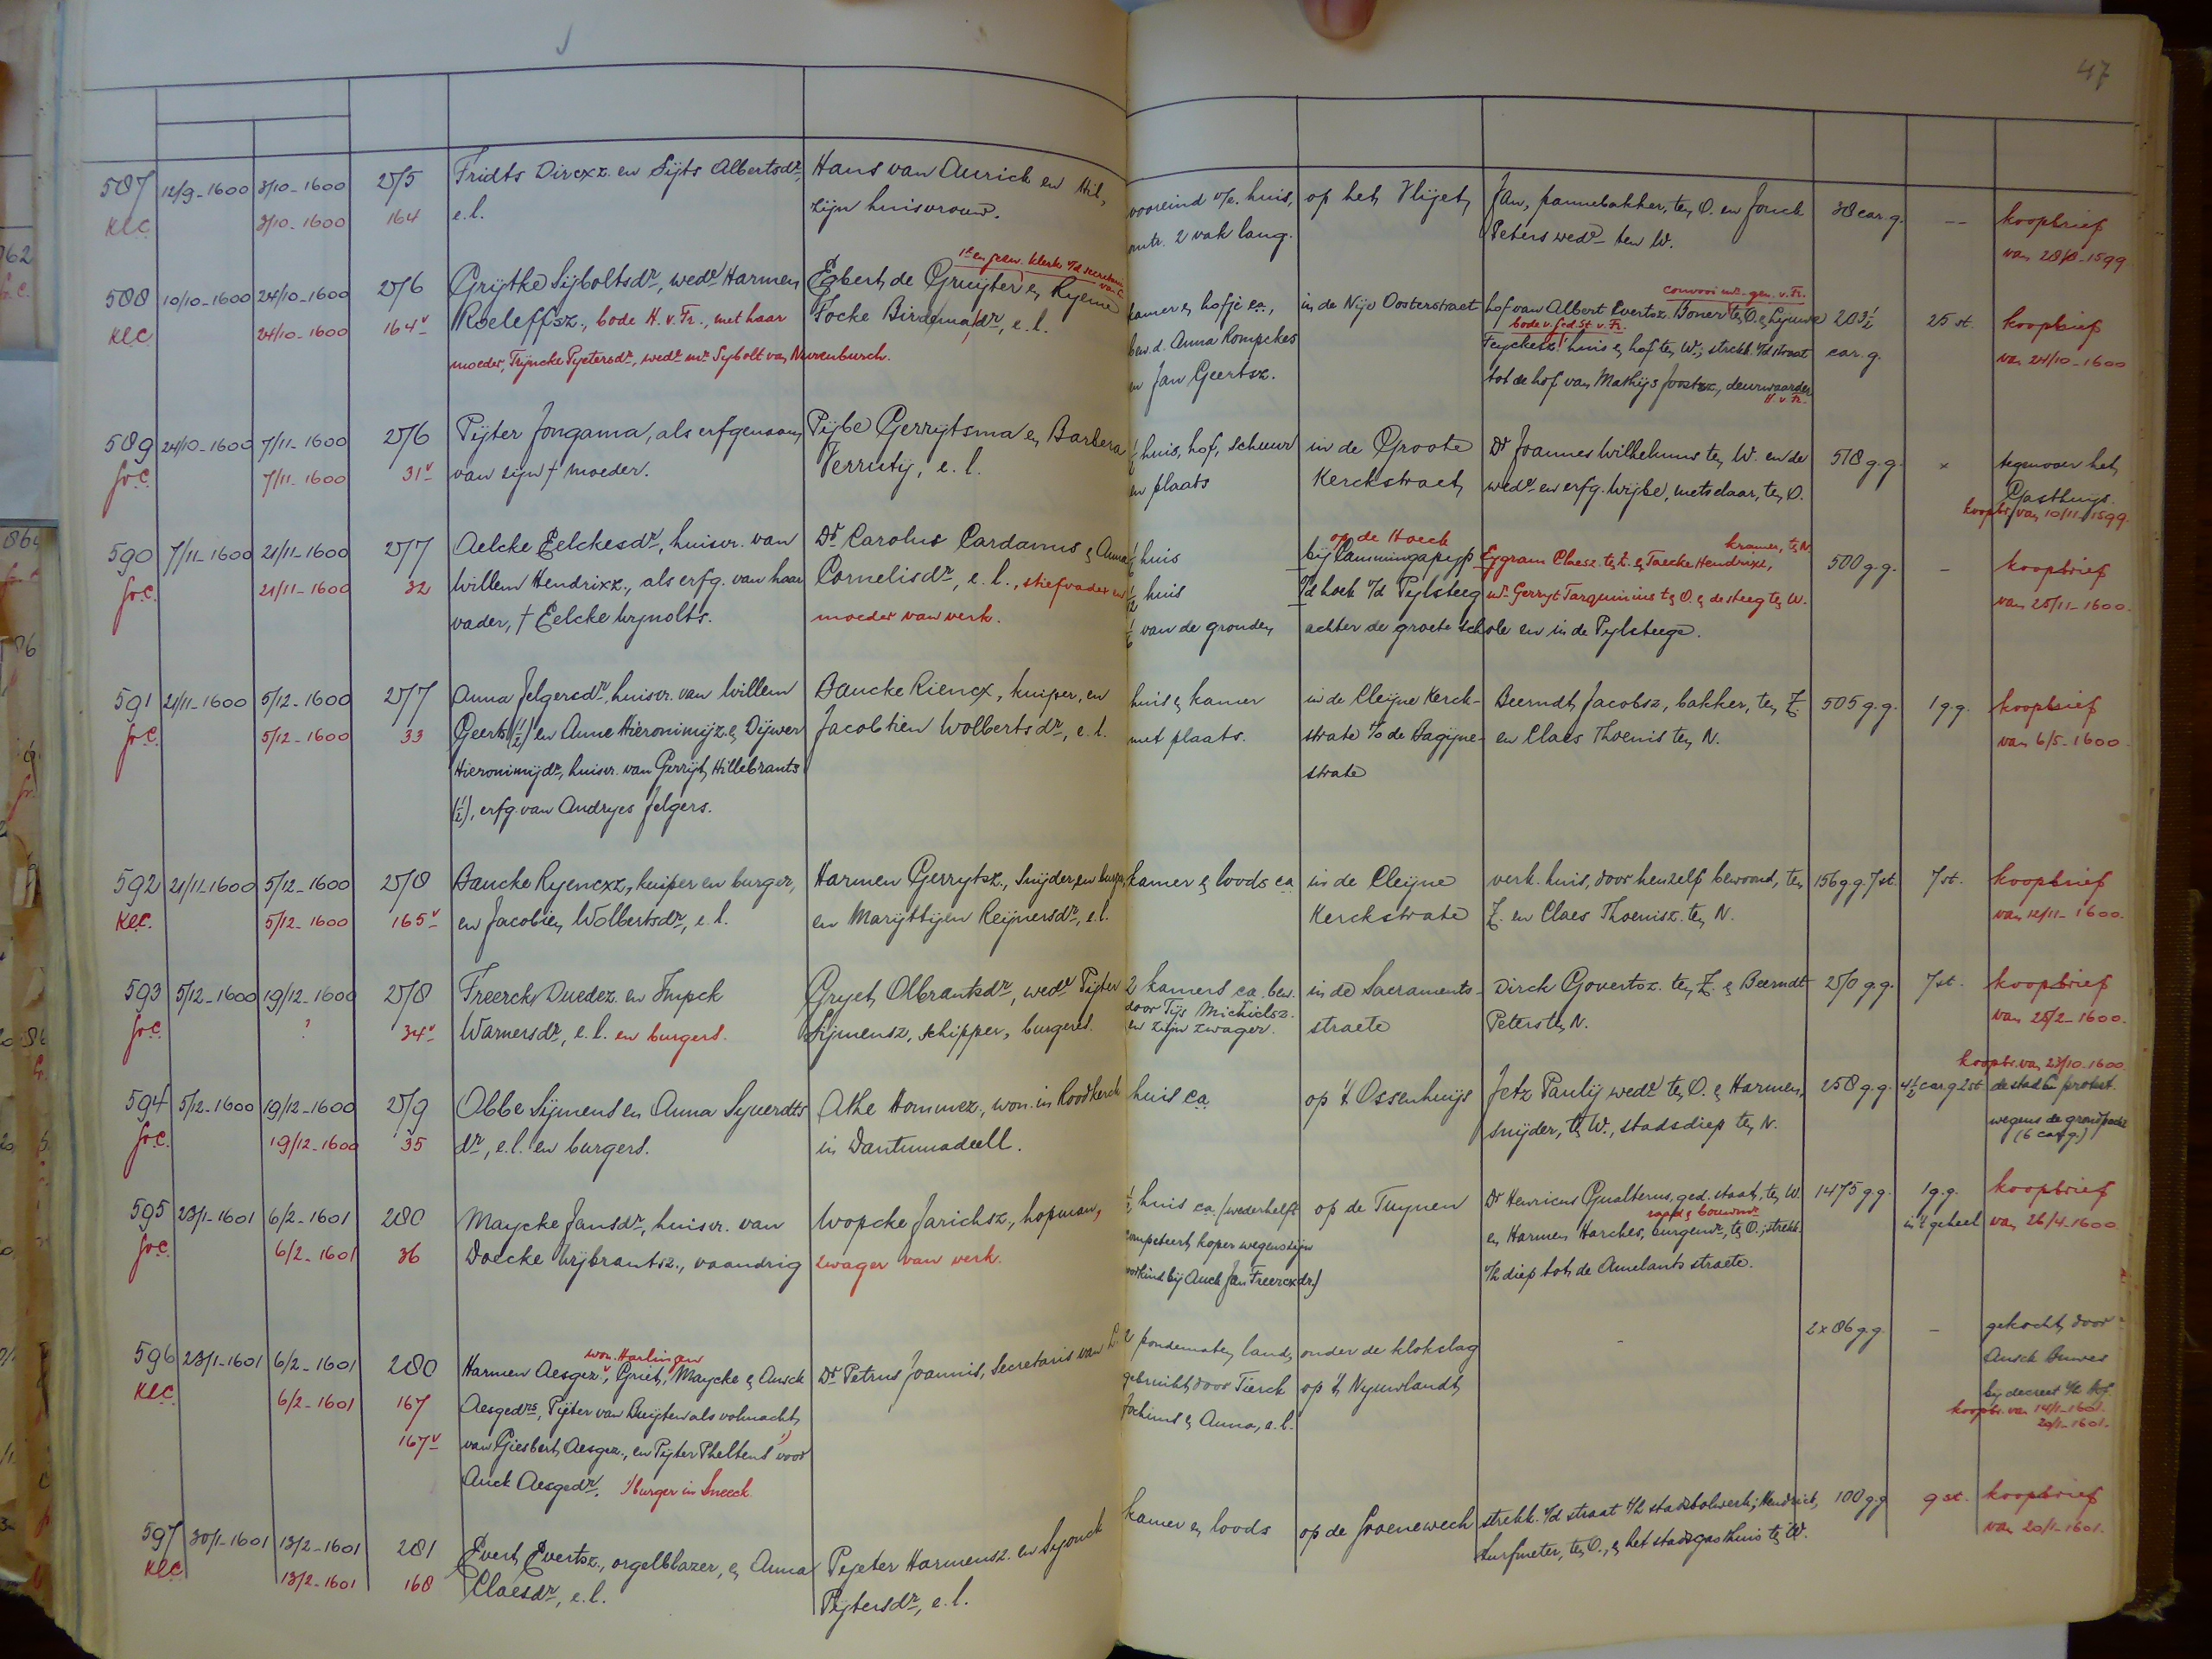 47
587 12/9-1600 3/10-1600 275 Fridts Dircxz. en Sijts Albertsdr, Hans van Aurick en Hil, vooreind v/e. huis, op het Vlijet Jan, pannebakker, ten O. en Jouck 38 car.g. -- koopbrief
KLC. 3/10-1600 164 e.l. zijn huisvrouw. omtr. 2 vak lang. Peters wedr ten W. van 28/8-1599
1e en gew. klerk v/d secretarie van L.
588 10/10-1600 24/10-1600 276 Grijtke Sijboltsdr, wedr Harmen Egbert de Gruijter en Ryeme kamer en hofje ca., in de Nije Oosterstraet hof van Albert Evertsz. Boner ten O. en Lieuwe 203½ 25 st. koopbrief
convooi mr. gen. v. Fr.
bode v. ged. St. v. Fr.
KLC 24/10-1600 164v Roeleffsz., bode H. v. Fr., met haar Focke Birdema dr, e.l. bew. d. Anna Rompckes Feyckesz. huis en hof ten W.; strekk. v/d straat car.g. van 24/10-1600
moeder, Trijncke Pyetersdr, wedr mr Sybolt van Nuvenburch. en Jan Geertsz. tot de hof van Mathijs Joostsz, deurwaarder
H. v. Fr.
589 24/10-1600 7/11-1600 276 Pijter Jongama, als erfgenaam Pijbe Gerrijtsma en Barbera huis, hof, schuur in de Groote Dr Joannes Wilhelmus ten W. en de 518 g.g. x tegenover het
Gr.C. 7/11-1600 31v van zijn † moeder. Verrutij, e.l. en plaats Kerckstraet wedr en erfg. Wijbe, metselaar, ten O. Gasthuijs.
koopbr. van 10/11-1599.
590 7/11-1600 21/11-1600 277 Aelcke Eelckesdr, huisvr. van Dr Carolus Cardamus en Anna huis bij Cammingapijp Eygram Claesz. ten Z. en Taecke Hendrixz, 500 g.g. - koopbrief
op de Hoeck
kramer, ten N.
Gr.C. 21/11-1600 32 Willem Hendrixz., als erfg. van haar Cornelisdr, e.l., stiefvader en 1/12 huis v/d hoek v/d Pylsteeg mr Gerryt Tarquinius ten O. en de steeg ten W. van 25/11-1600.
vader, † Eelcke Wynolts. moeder van verk. 1/6 van de gronden achter de groete schole en in de Pylsteege.
591 21/11-1600 5/12-1600 277 Anna Jelgersdr, huisvr. van Willem Bancke Riencx, kuiper, en huis en kamer in de Cleijne Kerck- Beerndt Jacobsz, bakker, ten Z. 505 g.g. 1 g.g. koopbrief
Gr.C. 5/12-1600 33 Geerts (½) en Anne Hieronimijz. en Dijwer Jacobtien Wolberts dr, e.l. met plaats. strate t/o de Bagijne- en Claes Thoenis ten N. van 6/5-1600
Hieronimijdr, huisvr. van Gerrijt Hillebrants strate
(½), erfg van Andryes Jelgers.
592 21/11-1600 5/12-1600 278 Bancke Ryencxz, kuiper en burger, Harmen Gerrytsz., snijder en burger, kamer en loods ca in de Cleijne verk. huis, door henzelf bewoond, ten 156 g.g. 7 st. 7 st. koopbrief
KLC. 5/12-1600 165v en Jacobien Wolbertsdr, e.l. en Marijttijen Reijnersdr, e.l. Kerckstrate Z. en Claes Thoenisz. ten N. van 12/11-1600.
593 5/12-1600 19/12-1600 278 Freerck Duedez. en Impck Gryet Olbrantsdr, wedr Pijter 2 kamers ca. bew. in de Sacraments- Dirck Govertsz. ten Z. en Beerndt 270 g.g. 7 st. koopbrief
Gr.C. ? 34v Warnersdr, e.l. en burgers. Sijmensz, schipper, burgeres. door Tijs Michielsz. en zijn zwager. straete Peters ten N. van 25/2-1600.
koopbr. van 23/10-1600.
594 5/12-1600 19/12-1600 279 Obbe Sijmens en Anna Syuerdts Athe Hommez., won. in Roodkerck huis ca op 't Ossenhuijs Jetz Paulij wedr ten O. en Harmen, 258 g.g. 4½ car.g 2 st de stad in protest
Gr.C. 19/12-1600 35 dr, e.l. en burgers. in Dantumadeell. snijder, ten W., stadsdiep ten N. wegens de grondpacht
(6 car g.)
595 23/1-1601 6/2-1601 280 Maycke Jansdr, huisvr. van Wopcke Jarichsz, hopman, ½ huis ca. (wederhelft op de Tuynen Dr Henricus Gualterus, ged. staat, ten W. 1475 g.g. 1 g.g. koopbrief
raad en bouwmr.
Gr.C. 6/2-1601 36 Doecke Wybrantsz., vaandrig zwager van verk. competeert koper wegens zijn en Harmen Harches, burgemr, ten O.; strekk. in 't geheel van 26/4-1600
voorkind bij Auck Jan Freercxdr) v/h diep tot de Amelants straete.
596 23/1-1601 6/2-1601 280 Harmen Aesgez., Griet, Maycke en Auck Dr Petrus Joannis, secretaris van L. 2 pondematen land, onder de klokslag - 2 x 86 g.g. - gekocht door
won. Harlingen
KLC. 6/2-1601 167 Aesgedrs, Pijter van Buijten als volmacht gebruikt door Tierck op 't Nyuwlandt Ausck Buwes
167v van Giesbert Aesgez., en Pijter Pheltens 1) voor Jochims en Anna, e.l. bij decreet v/h hof.
Auck Aesgedr. 1) burger in Sneeck. koopbr. van 14/1-1601.
20/1-1601.
597 30/1-1601 13/2-1601 281 Evert Evertsz., orgelblazer, en Anna Pyeter Harmensz. en Syouck kamer en loods op de Groenewech strekk. v/d straat t/h stadsbolwerk; Hendrick, 100 g.g 9 st. koopbrief
KLC 13/2-1601 168 Claesdr, e.l. Pijtersdr, e.l. turfmeter, ten O., en het stadsgasthuis ten W. van 20/1-1601.